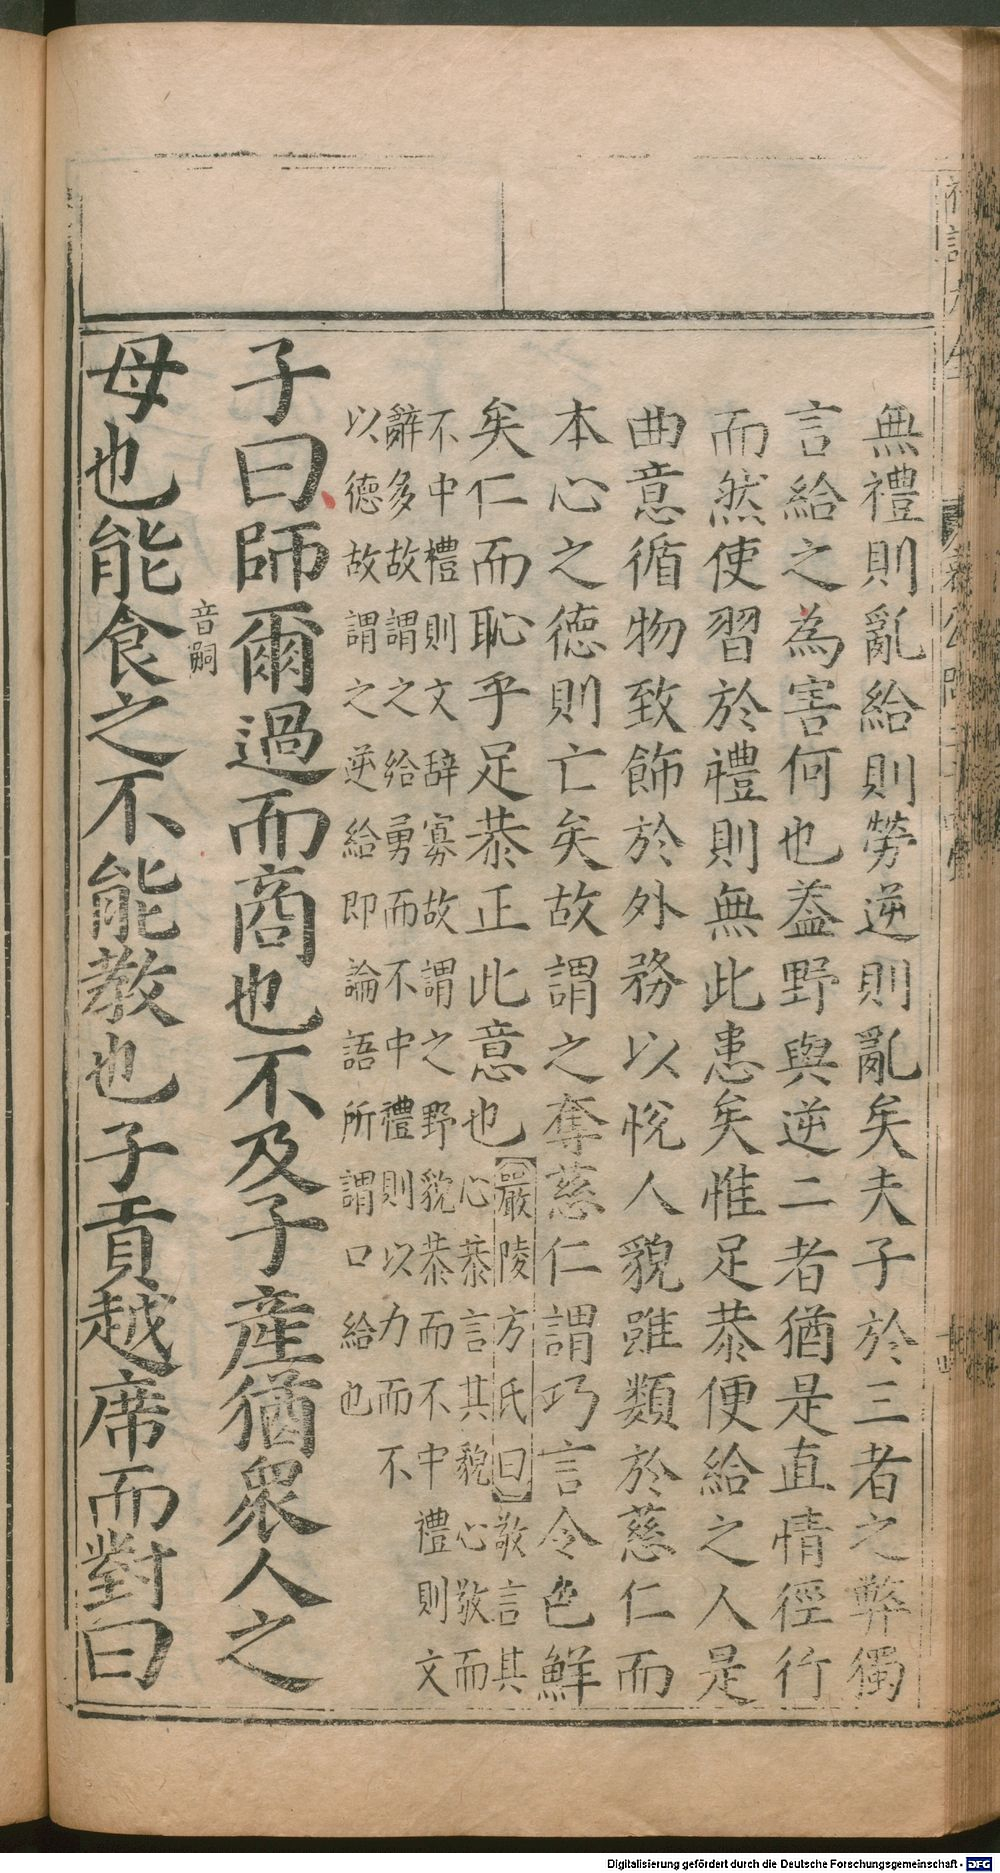 無禮則亂給則勞逆則亂矣夫子於三者之弊獨
言給之為害何也葢野與逆二者猶是直情徑行
而然使習於禮則無此患矣惟足恭便給之人是
曲意循物致飾於外務以悅人貌雖類於慈仁而
本心之德則亡矣故謂之奪慈仁謂巧言令色鮮
矣仁而恥乎足恭正此意也
嚴陵方氏曰敬言其
心恭言其貌心敬而
不中禮則文辞寡故謂之野貌恭而不中禮則文
辭多故謂之給勇而不中禮則以力而不
以德故謂之逆給即論語所謂口給也
子曰師爾過而商也不及子產猶衆人之
母也能食之不能教也子貢越席而對曰
音嗣
Digitalisierung gefördert durch die Deutsche Forschungsgemeinschaft - DFG